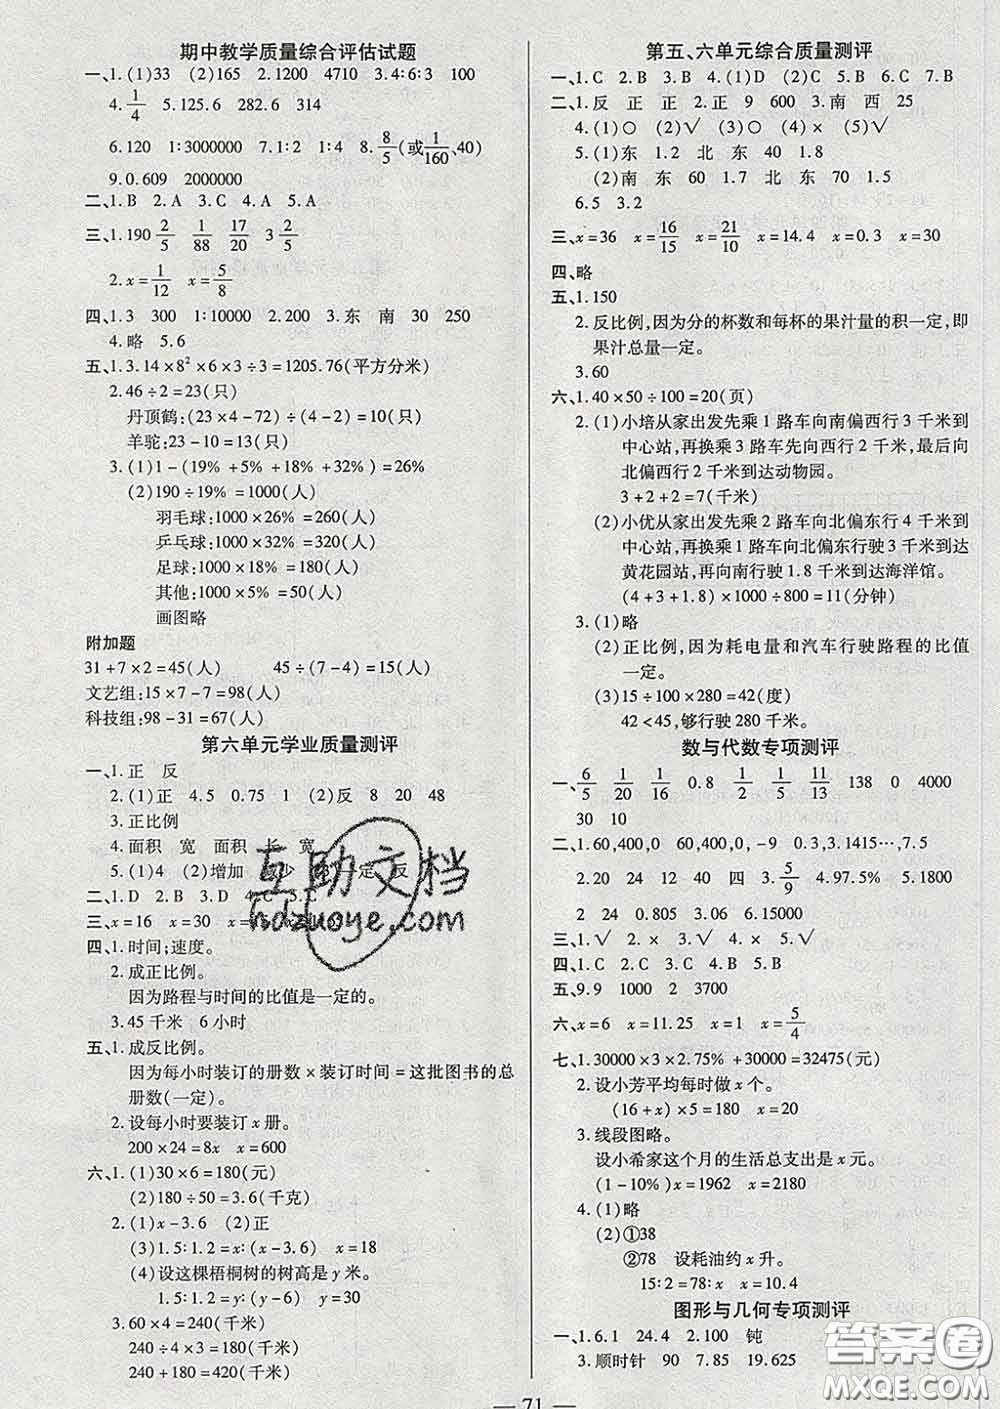 期中教学质量综合评估试题
一、1.(1)33 (2)165 2.1200 4710 3.4∶6∶3 100
4. 1/4 5.125.6 282.6 314
6.120 1∶3000000 7.1∶2 1∶4 8. 8/5(或 1/160、40)
9.0.609 2000000
二、1.B 2.A 3.C 4.A 5.A
三、1.190 2/5 1/88 17/20 3 2/5
2.x=1/12 x=5/8
四、1.3 300 1∶10000 2.200 3.东 南 30 250
4.略 5.6
五、1.3.14×8²×6×3÷3=1205.76(平方分米)
2.46÷2=23(只)
丹顶鹤:(23×4-72)÷(4-2)=10(只)
羊驼:23-10=13(只)
3.(1)1-(19%+5%+18%+32%)=26%
(2)190÷19%=1000(人)
羽毛球:1000×26%=260(人)
乒乓球:1000×32%=320(人)
足球:1000×18%=180(人)
其他:1000×5%=50(人)
画图略
附加题
31+7×2=45(人) 45÷(7-4)=15(人)
文艺组:15×7-7=98(人)
科技组:98-31=67(人)
第六单元学业质量测评
一、1.正 反
2.(1)正 4.5 0.75 1 (2)反 8 20 48
3.正比例
4.面积 宽 面积 长 宽
5.(1)4 (2)增加 减少 定 反
二、1.D 2.B 3.A 4.C 5.C
三、x=16 x=30 x=
四、1.时间;速度。
2.成正比例。
因为路程与时间的比值是一定的。
3.45千米 6小时
五、1.成反比例。
因为每小时装订的册数×装订时间=这批图书的总
册数(一定)。
2.设每小时要装订x册。
200×24=8x x=600
六、1.(1)30×6=180(元)
(2)180÷50=3.6(千克)
2.(1)x-3.6 (2)正
(3)1.5∶1.2=x∶(x-3.6) x=18
(4)设这棵梧桐树的树高是y米。
1.5∶1.2=y∶(y-6) y=30
3.60×4=240(千米)
240÷4×3=180(千米)
240+180=420(千米)
第五、六单元综合质量测评
一、1.C 2.B 3.B 4.(1)D (2)C 5.B 6.C 7.B
二、1.反 正 正 2.正 9 600 3.南 西 25
4.(1)○ (2)√ (3)○ (4)× (5)√
5.(1)东 1.2 北 东 40 1.8
(2)南 东 60 1.7 北 东 70 1.5
6.5 3.2
三、x=36 x=16/15 x=21/10 x=14.4 x=0.3 x=30
四、略
五、1.150
2.反比例,因为分的杯数和每杯的果汁量的积一定,即
果汁总量一定。
3.60
六、1.40×50÷100=20(页)
2.(1)小培从家出发先乘1路车向南偏西行3千米到
中心站,再换乘3路车先向西行2千米,最后向
北偏西行2千米到达动物园。
3+2+2=7(千米)
(2)小优从家出发先乘2路车向北偏东行4千米到
中心站,再换乘1路车向北偏东行驶3千米到达
黄花园站,再向南行驶1.8千米到达海洋馆。
(4+3+1.8)×1000÷800=11(分钟)
3.(1)略
(2)正比例,因为耗电量和汽车行驶路程的比值
一定。
(3)15÷100×280=42(度)
42<45,够行驶280千米。
数与代数专项测评
一、6/5 1/20 1/16 0.8 1/2 1/5 11/13 138 0 4000
30 10
二、1.60,400,0 60,400,0,-9 0.3,3.1415…,7.5
2.20 24 12 40 四 3. 5/9 4.97.5% 5.1800
2 24 0.805 3.06 6.15000
三、1.√ 2.× 3.√ 4.× 5.√
四、1.C 2.C 3.A 4.B 5.B
五、9.9 1000 2 3700
六、x=6 x=11.25 x=1 x=5/4
七、1.30000×3×2.75%+30000=32475(元)
2.设小芳平均每时做x个。
(16+x)×5=180 x=20
3.线段图略。
设小希家这个月的生活总支出是x元。
(1-10%)x=1962 x=2180
4.(1)略
(2)①38
②78 设耗油约x升。
15∶2=78∶x x=10.4
图形与几何专项测评
一、1.6.1 24.4 2.100 钝
3.顺时针 90 7.85 19.625
71
互助文档
hdzuoye.com
答案圈
MXQE.COM